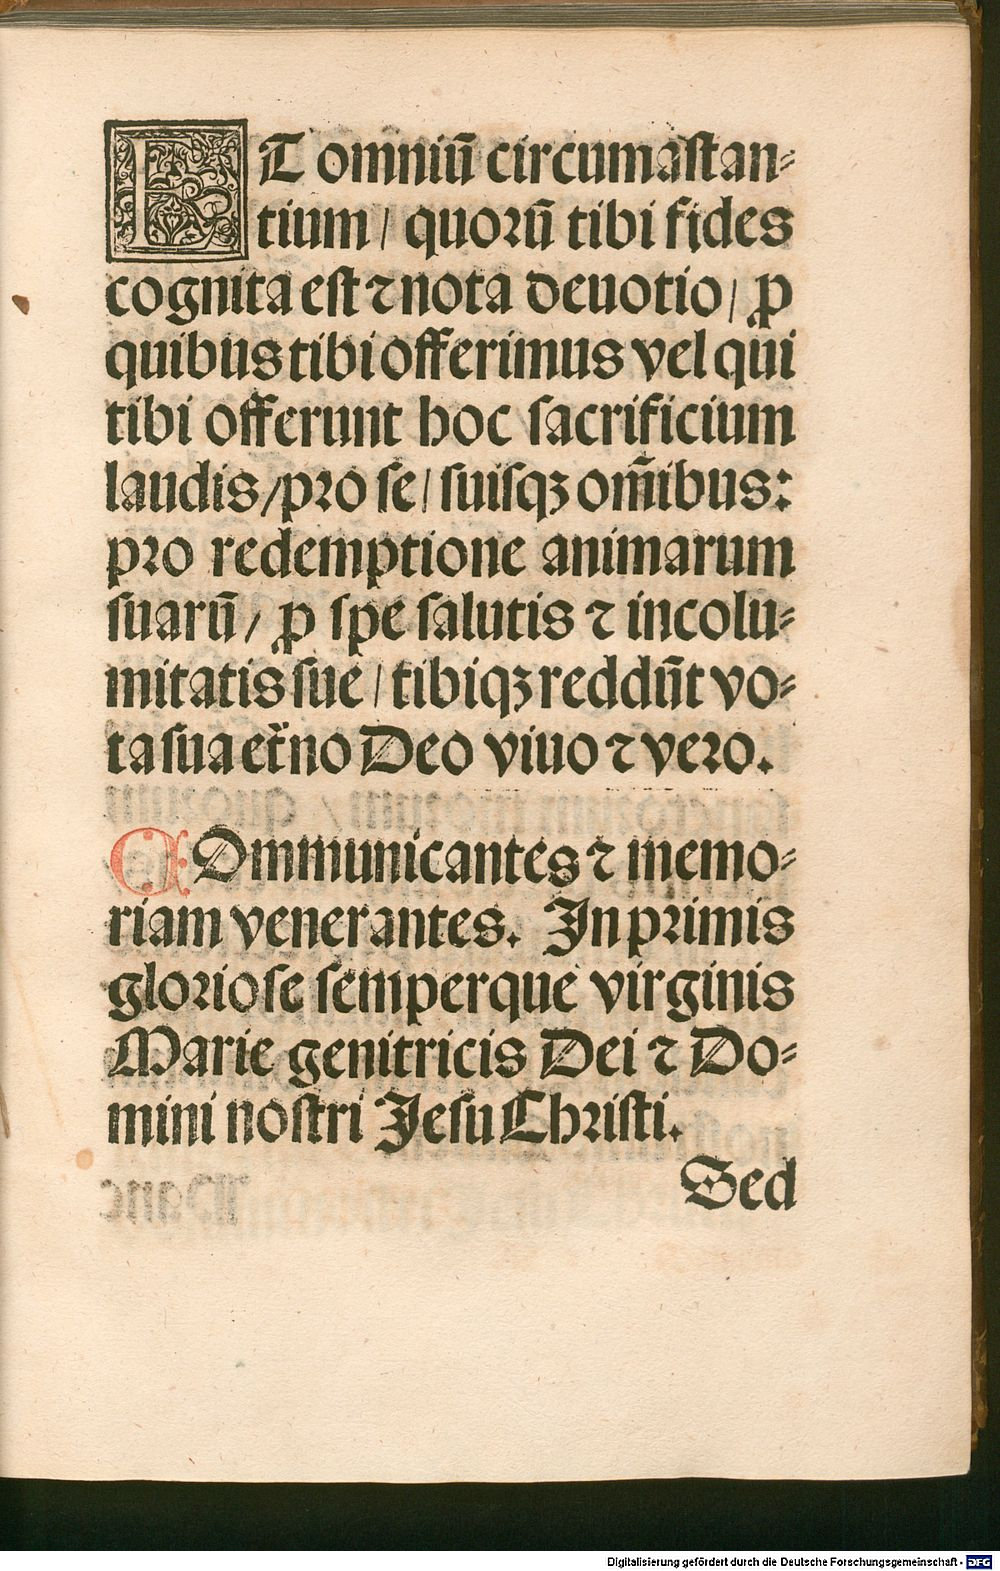 ET omniū circumastan⸗
tium / quoꝛū tibi fides
cognita est ⁊ nota deuotio / ꝓ
quibus tibi offerimus vel qui
tibi offerunt hoc ſacrificium
laudis / pꝛo ſe / ſuiſqꝫ om̄ibus:
pꝛo redemptione animarum
ſuarū / ꝓ ſpe ſalutis ⁊ incolu⸗
mitatis ſue / tibiqꝫ reddūt vo⸗
ta ſua et̄no Deo viuo ⁊ veꝛo.
COmmunicantes ⁊ memo⸗
riam venerantes. In pꝛimis
gloꝛioſe ſemperque virginis
Marie genitricis Dei ⁊ Do⸗
mini noſtri Jeſu Chꝛiſti.
Sed
Digitalisierung gefördert durch die Deutsche Forschungsgemeinschaft - DFG